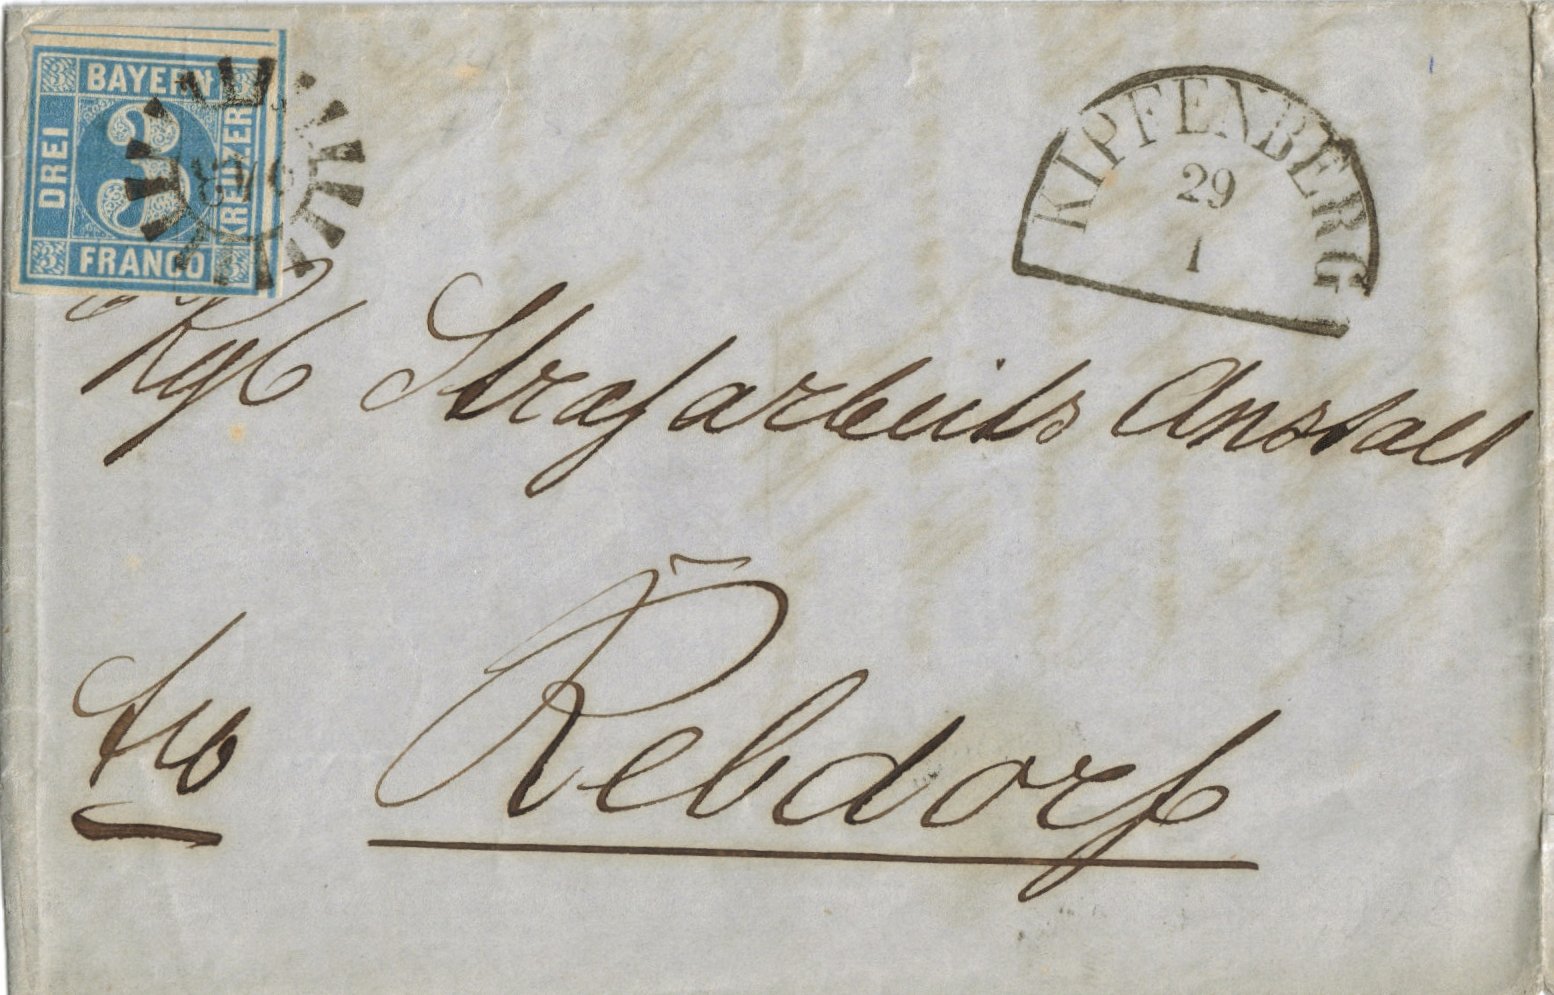 BAYERN
DREI
KREUZER
3
FRANCO
KIPFENBERG
29
1
Kgl Strafarbeits Anstalt
fro Rebdorf